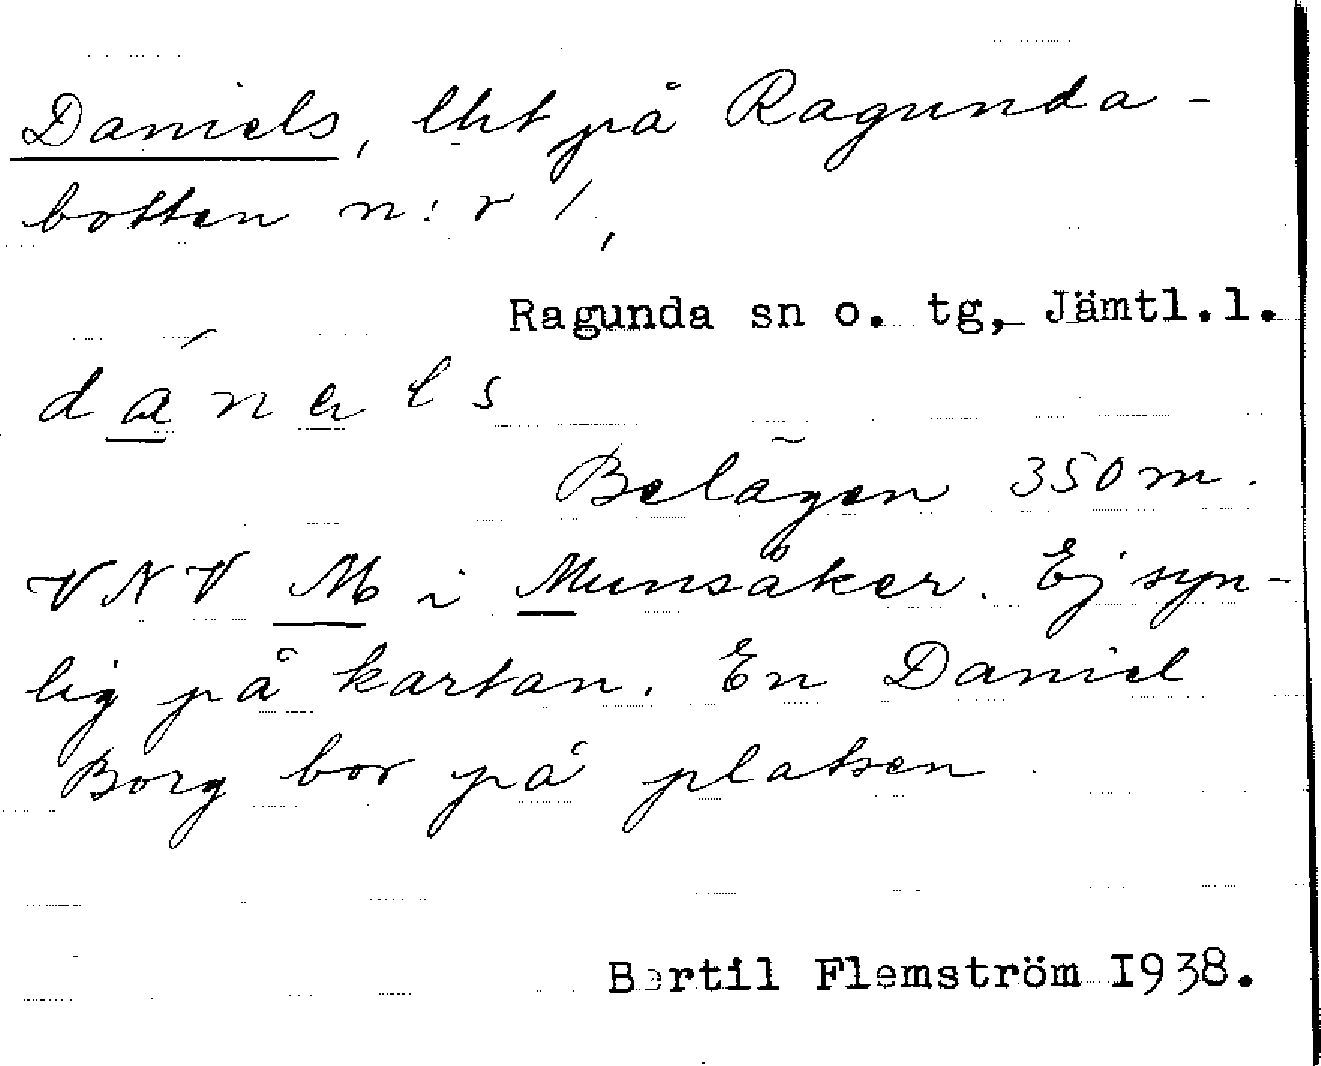 Daniels, lht på Ragunda-
botten n:r 1,
Ragunda sn o. tg, Jämtl.l.
Belägen 350 m.
VNV M i Munsåker. Ej syn-
lig på kartan. En Daniel
Borg bor på platsen.
Bertil Flemström 1938.